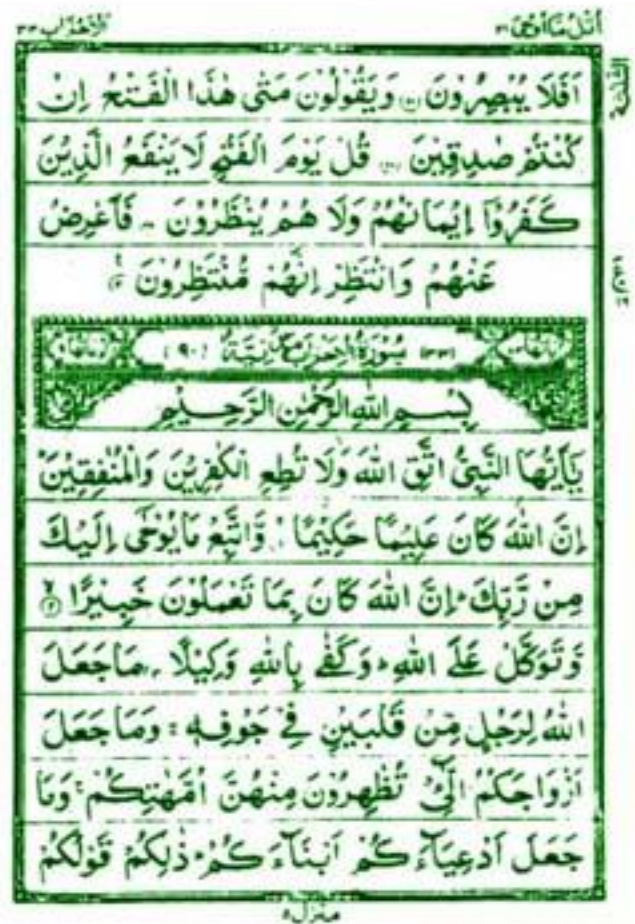 اتل ما اوحی ۲۱
الاحزاب ۳۳
اَفَلَا يُبْصِرُوْنَ وَيَقُوْلُوْنَ مَتٰى هٰذَا الْفَتْحُ اِنْ
كُنْتُمْ صٰدِقِيْنَ قُلْ يَوْمَ الْفَتْحِ لَا يَنْفَعُ الَّذِيْنَ
كَفَرُوْۤا اِيْمَانُهُمْ وَلَا هُمْ يُنْظَرُوْنَ فَاَعْرِضْ
عَنْهُمْ وَانْتَظِرْ اِنَّهُمْ مُّنْتَظِرُوْنَ
(۳۳) سُوْرَةُ الْاَحْزَابِ مَدَنِيَّةٌ (۹۰)
بِسْمِ اللهِ الرَّحْمٰنِ الرَّحِيْمِ
يٰۤاَيُّهَا النَّبِيُّ اتَّقِ اللهَ وَلَا تُطِعِ الْكٰفِرِيْنَ وَالْمُنٰفِقِيْنَ
اِنَّ اللهَ كَانَ عَلِيْمًا حَكِيْمًا وَّاتَّبِعْ مَا يُوْحٰۤى اِلَيْكَ
مِنْ رَّبِّكَ اِنَّ اللهَ كَانَ بِمَا تَعْمَلُوْنَ خَبِيْرًا
وَّتَوَكَّلْ عَلَى اللهِ وَكَفٰى بِاللهِ وَكِيْلًا مَا جَعَلَ
اللهُ لِرَجُلٍ مِّنْ قَلْبَيْنِ فِيْ جَوْفِهٖ وَمَا جَعَلَ
اَزْوَاجَكُمُ الّٰٓـِٔيْ تُظٰهِرُوْنَ مِنْهُنَّ اُمَّهٰتِكُمْ وَمَا
جَعَلَ اَدْعِيَآءَكُمْ اَبْنَآءَكُمْ ذٰلِكُمْ قَوْلُكُمْ
منزل ۵